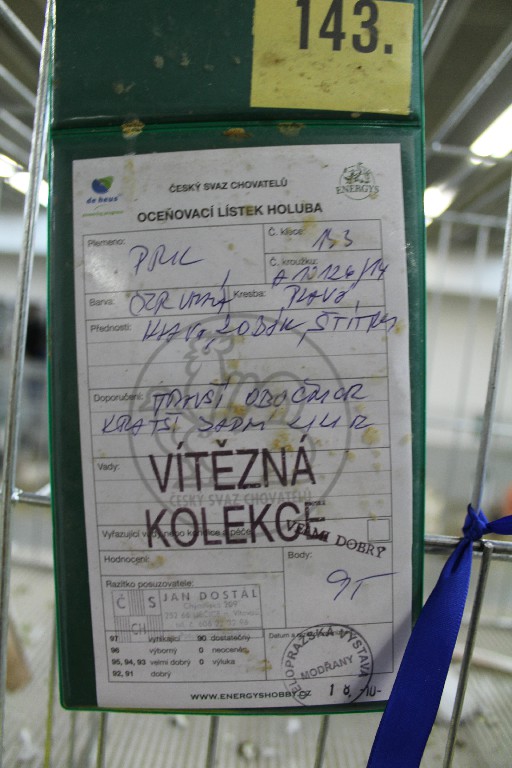 143.
de heus
ČESKÝ SVAZ CHOVATELŮ
ENERGYS
OCEŇOVACÍ LÍSTEK HOLUBA
Plemeno: PRK
Č. klece:
Č. kroužku: A 10126/14
Barva: Kresba:
Přednosti: HLAVA, ZOBÁK, ŠTÍTKY
Doporučení: TMAVŠÍ OBOČÍ
KRATŠÍ ZADNÍ
Vady:
VÍTĚZNÁ
ČESKÝ SVAZ CHOVATELŮ
KOLEKCE
Vyřazující vady nebo kondice a péče:
VELMI DOBRÝ
Hodnocení:
Body:
95
Razítko posuzovatele:
ČS CH
JAN DOSTÁL
97 vynikající 90 dostatečný
96 výborný 0 neoceněn
95, 94, 93 velmi dobrý 0 výluka
92, 91 dobrý
Datum a
CELOPRAŽSKÁ VÝSTAVA
MODŘANY
18. -10-
WWW.ENERGYSHOBBY.CZ